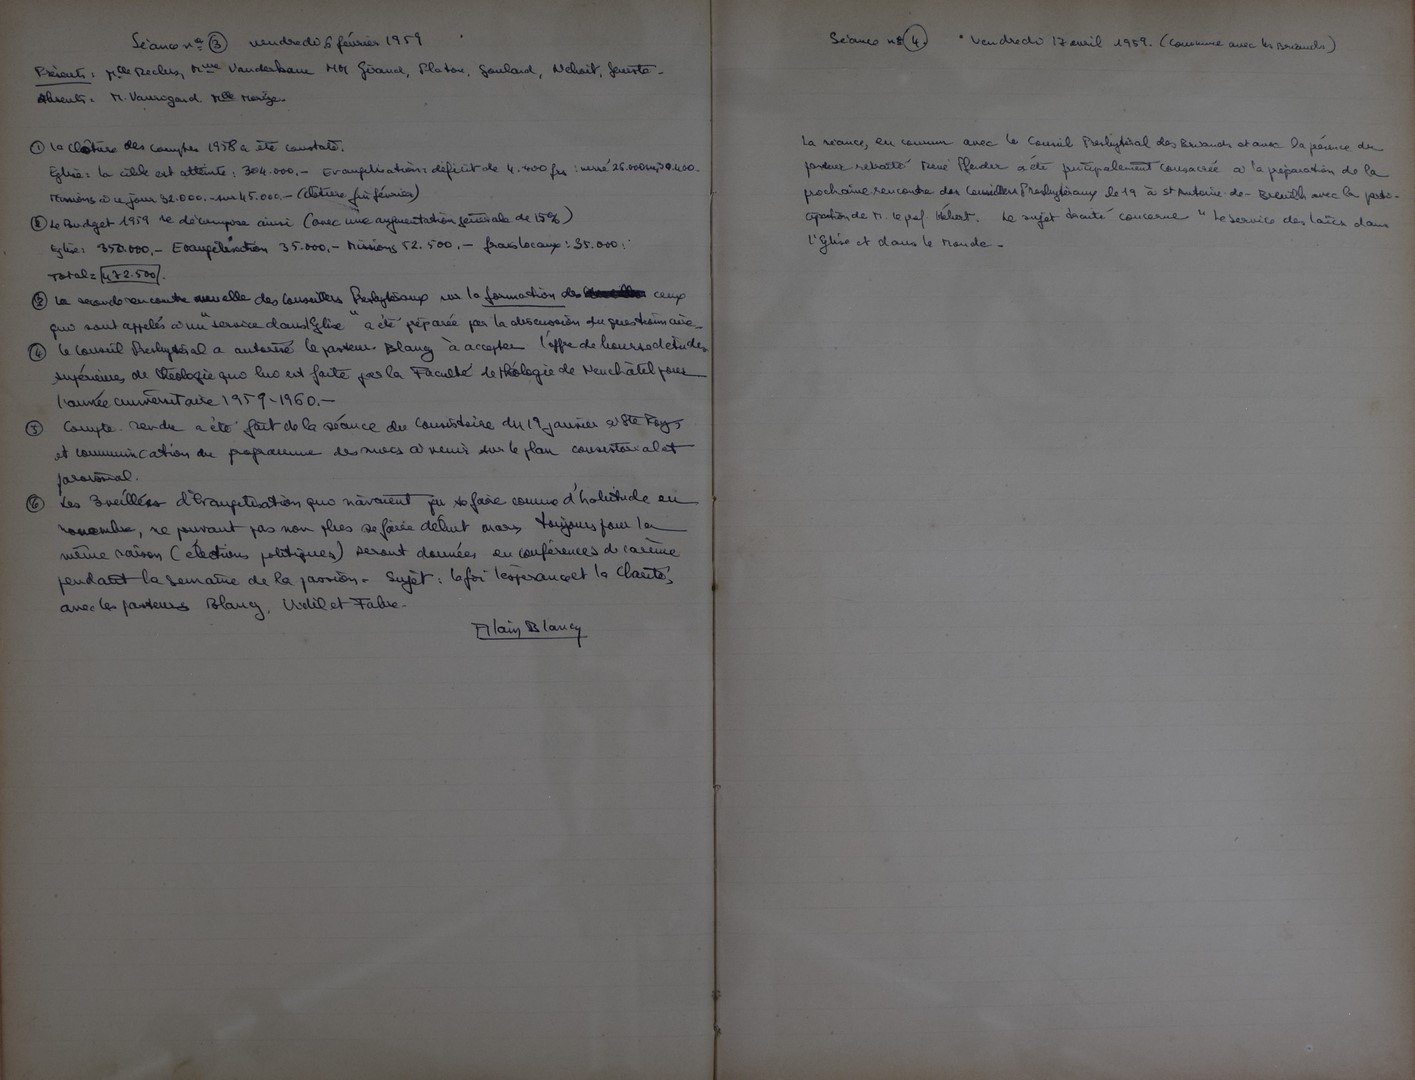 Séance n° 3 vendredi 6 février 1959
Présents : Mlle Reclus, Mme Vanderhaue MM Giraud, Platon, Goulard,
Absents : M. Vauregard. Mlle
① La clôture des comptes 1958 a été constaté.
Eglise : la cible est atteinte : 304.000.- Evangélisation : déficit de 4.400 frs : versé 26.000 sur 30.400.
Missions à ce jour 32.000.- sur 45.000.- (clôture fin février)
② Le Budget 1959 se décompose ainsi (avec une augmentation générale de 15%)
Eglise : 350.000,- Evangélisation 35.000,- Missions 52.500,- frais locaux : 35.000 :
Total = 472.500.
③ La seconde rencontre annuelle des Conseillers Presbytéraux sur la formation de ceux
qui sont appelés à un "service dans l'Eglise" a été préparée par la discussion du questionnaire.
④ Le Conseil Presbytéral a autorisé le pasteur Blancy à accepter l'offre de bourse d'études
supérieures de théologie que lui est faite par la Faculté de théologie de Neuchâtel pour
l'année universitaire 1959-1960.-
⑤ Compte-rendu a été fait de la séance du Consistoire du 19 janvier à Ste Foy,
et communication du programme des mois à venir sur le plan consistorial et
paroissial.
⑥ Les 3 veillées d'Evangélisation qui n'avaient pu se faire comme d'habitude en
novembre, ne pouvant pas non plus se faire début mars, toujours pour la
même raison (élections politiques) seront données en conférences de carême
pendant la semaine de la passion. Sujet : la foi l'espérance et la Charité,
avec les pasteurs Blancy, et Fabre.
Alain Blancy
Séance n° 4. Vendredi 17 avril 1959. (Commune avec les Briands)
La séance, en commun avec le Conseil Presbytéral des Briands et avec la présence du
pasteur retraité René Pfender a été principalement consacrée à la préparation de la
prochaine rencontre des Conseillers Presbytéraux le 19 à St Antoine-de-Breuilh avec la parti-
cipation de M. le prof. Hébert. Le sujet traité concerne "Le service des laïcs dans
l'Eglise et dans le Monde.